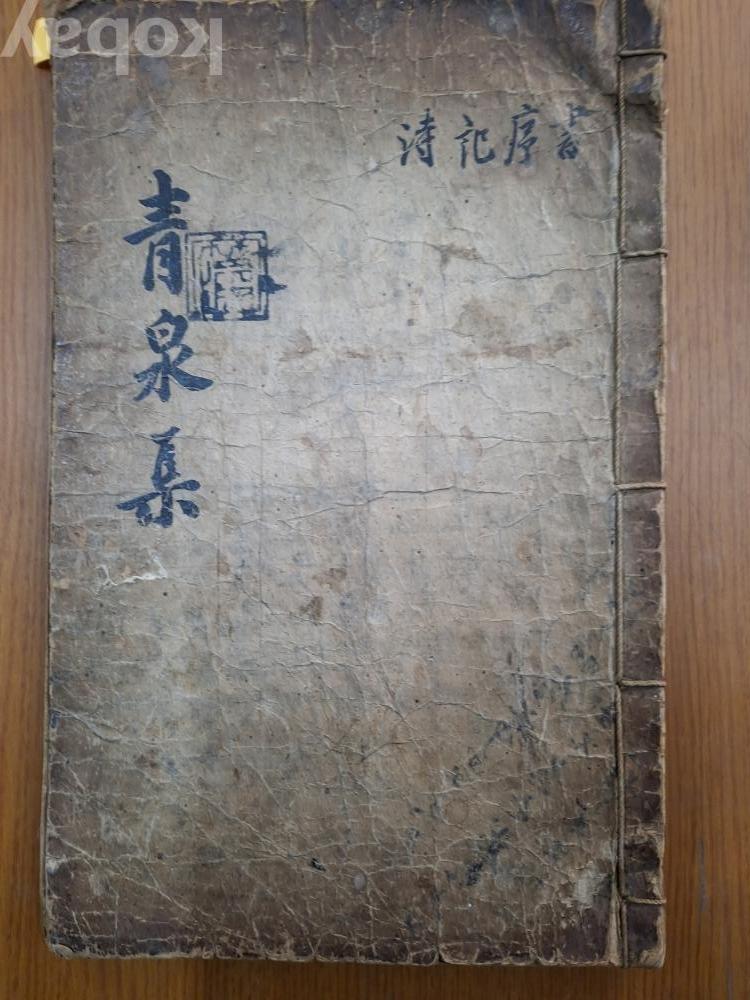 kobay
青泉集
詩記序書